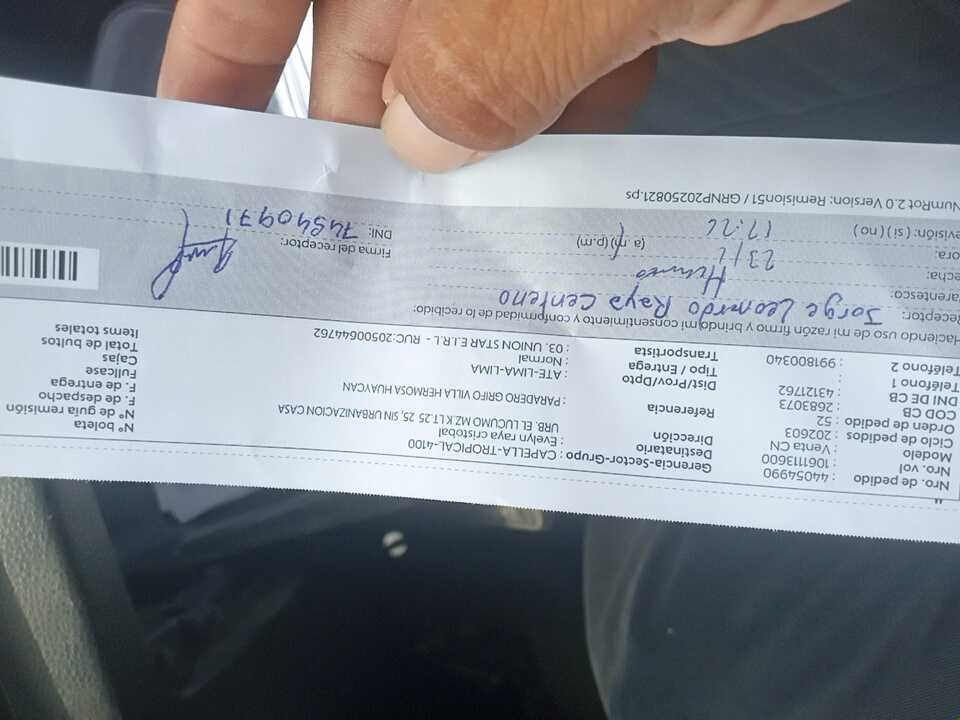 Nro. de pedido : 44054990
Nro. vol : 1061113600
Modelo : Venta CN
Ciclo de pedidos : 202603
Orden de pedido : 52
COD CB : 2683073
DNI DE CB : 43121762
Teléfono 1 :
Teléfono 2 : 991800340
Gerencia-Sector-Grupo : CAPELLA-TROPICAL-4100
Destinatario : Evelyn raya cristobal
Dirección : URB. EL LUCUMO MZ.K LT.25, 25, SIN URBANIZACION CASA
Referencia : PARADERO GRIFO VILLA HERMOSA HUAYCAN
Dist/Prov/Dpto : ATE-LIMA-LIMA
Tipo / Entrega : Normal
Transportista : 03. UNION STAR E.I.R.L. - RUC:20500644762
Nº boleta
Nº de guia remisión
F. de despacho
F. de entrega
Fullcase
Cajas
Total de bultos
Items totales
Haciendo uso de mi razón firmo y brindo mi consentimiento y conformidad de lo recibido:
Receptor: Jorge Leonardo Raya Centeno
arentesco:
echa: 23/
ora: 17:26 (a.m) (p.m)
evisión: (si) (no)
Firma del receptor:
DNI: 74540971
NumRot 2.0 Version: Remision51 / GRNP20250821.ps